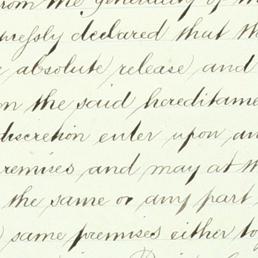 from the generality of
pressly declared that th
absolute release and
on the said hereditame
discretion enter upon an
remises and may at th
the same or any part
same premises either to